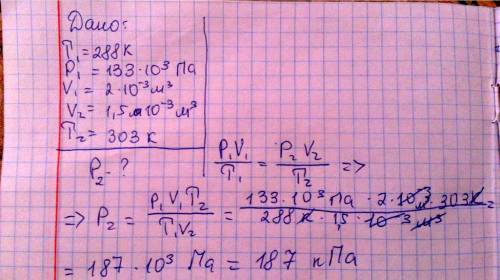 Дано:
T₁ = 288 К
P₁ = 133·10³ Па
V₁ = 2·10⁻³ м³
V₂ = 1,5·10⁻³ м³
T₂ = 303 К
P₂ - ?
P₁V₁/T₁ = P₂V₂/T₂ =>
=> P₂ = P₁V₁T₂/T₁V₂ = 133·10³ Па · 2·10⁻³ м³ · 303 К/288 К · 1,5 · 10⁻³ м³ =
= 187·10³ Па = 187 кПа